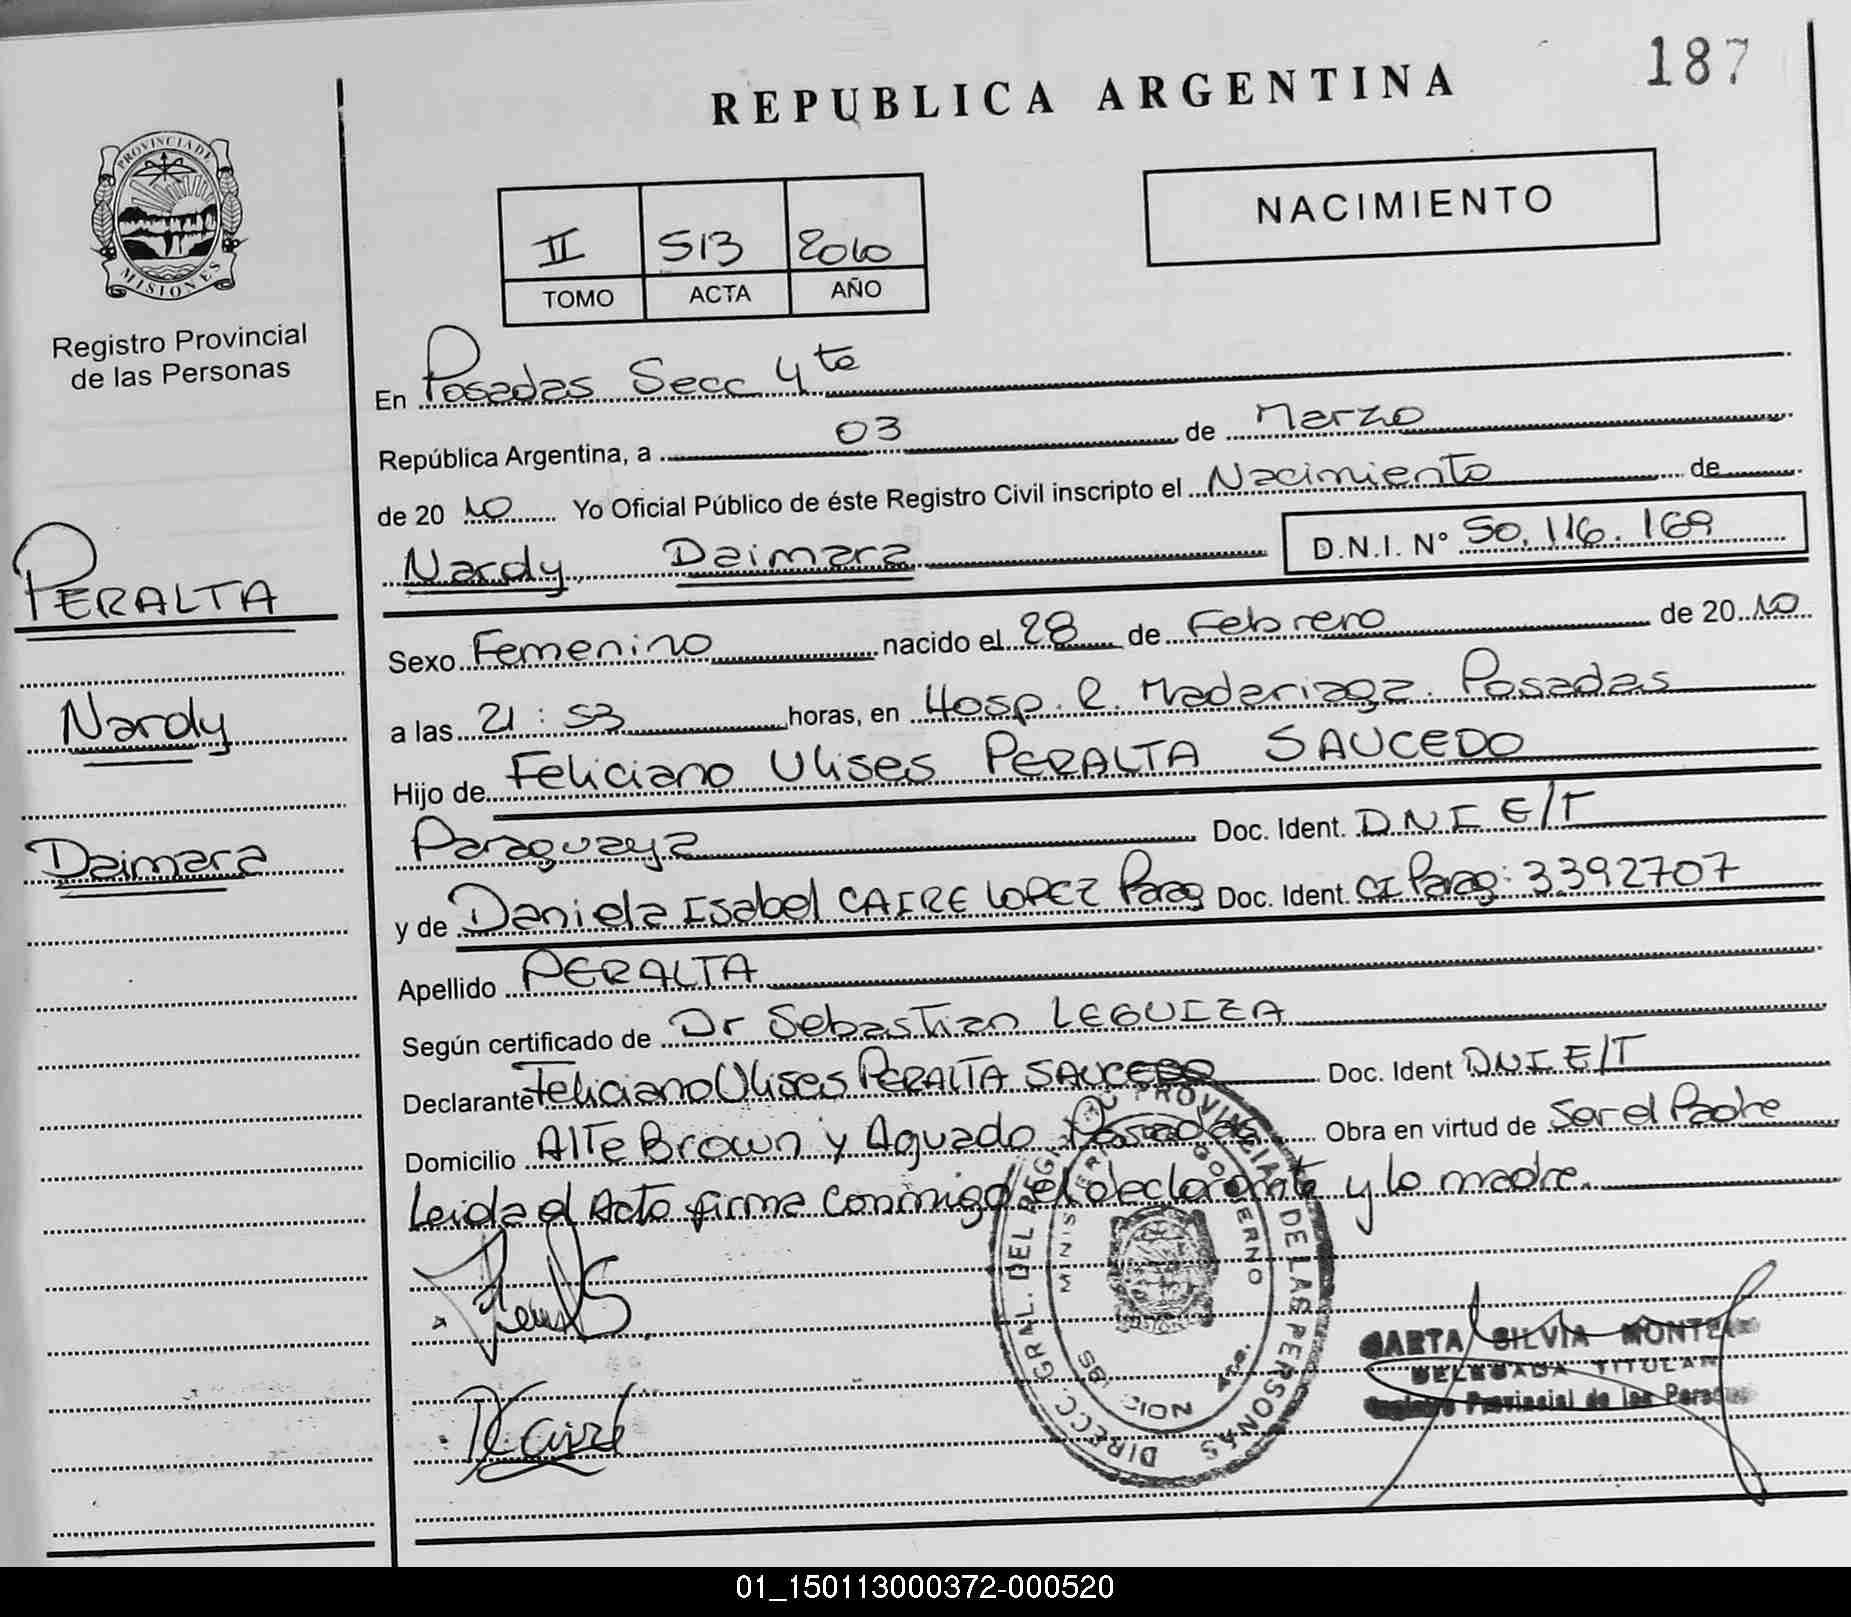 187
REPUBLICA ARGENTINA
PROVINCIA DE
MISIONES
Registro Provincial
de las Personas
NACIMIENTO
II 513 2010
TOMO ACTA AÑO
En Posadas Secc 4ta
República Argentina, a 03 de Marzo
de 20 10 Yo Oficial Público de éste Registro Civil inscripto el Nacimiento de
Nardy Daimara D.N.I. N° 50.116.169
PERALTA
Nardy
Daimara
Sexo Femenino nacido el 28 de Febrero de 20 10
a las 21:53 horas, en Hosp. R. Madariaga. Posadas
Hijo de Feliciano Ulises PERALTA SAUCEDO
Paraguaya Doc. Ident. DNI E/T
y de Daniela Isabel CAIRE LOPEZ Parag Doc. Ident. CI Parag: 3392707
Apellido PERALTA
Según certificado de Dr Sebastian LEGUIZA
Declarante Feliciano Ulises PERALTA SAUCEDO Doc. Ident DNI E/T
Domicilio Alte Brown y Aguado Posadas Obra en virtud de Ser el Padre
Leida el Acta firma conmigo el declarante y la madre.
DIRECC. GRAL. DEL REGISTRO PROVINCIAL DE LAS PERSONAS
MINISTERIO GOBIERNO
SILVIA
DELEGADA TITULAR
Registro Provincial de las Personas
01_150113000372-000520